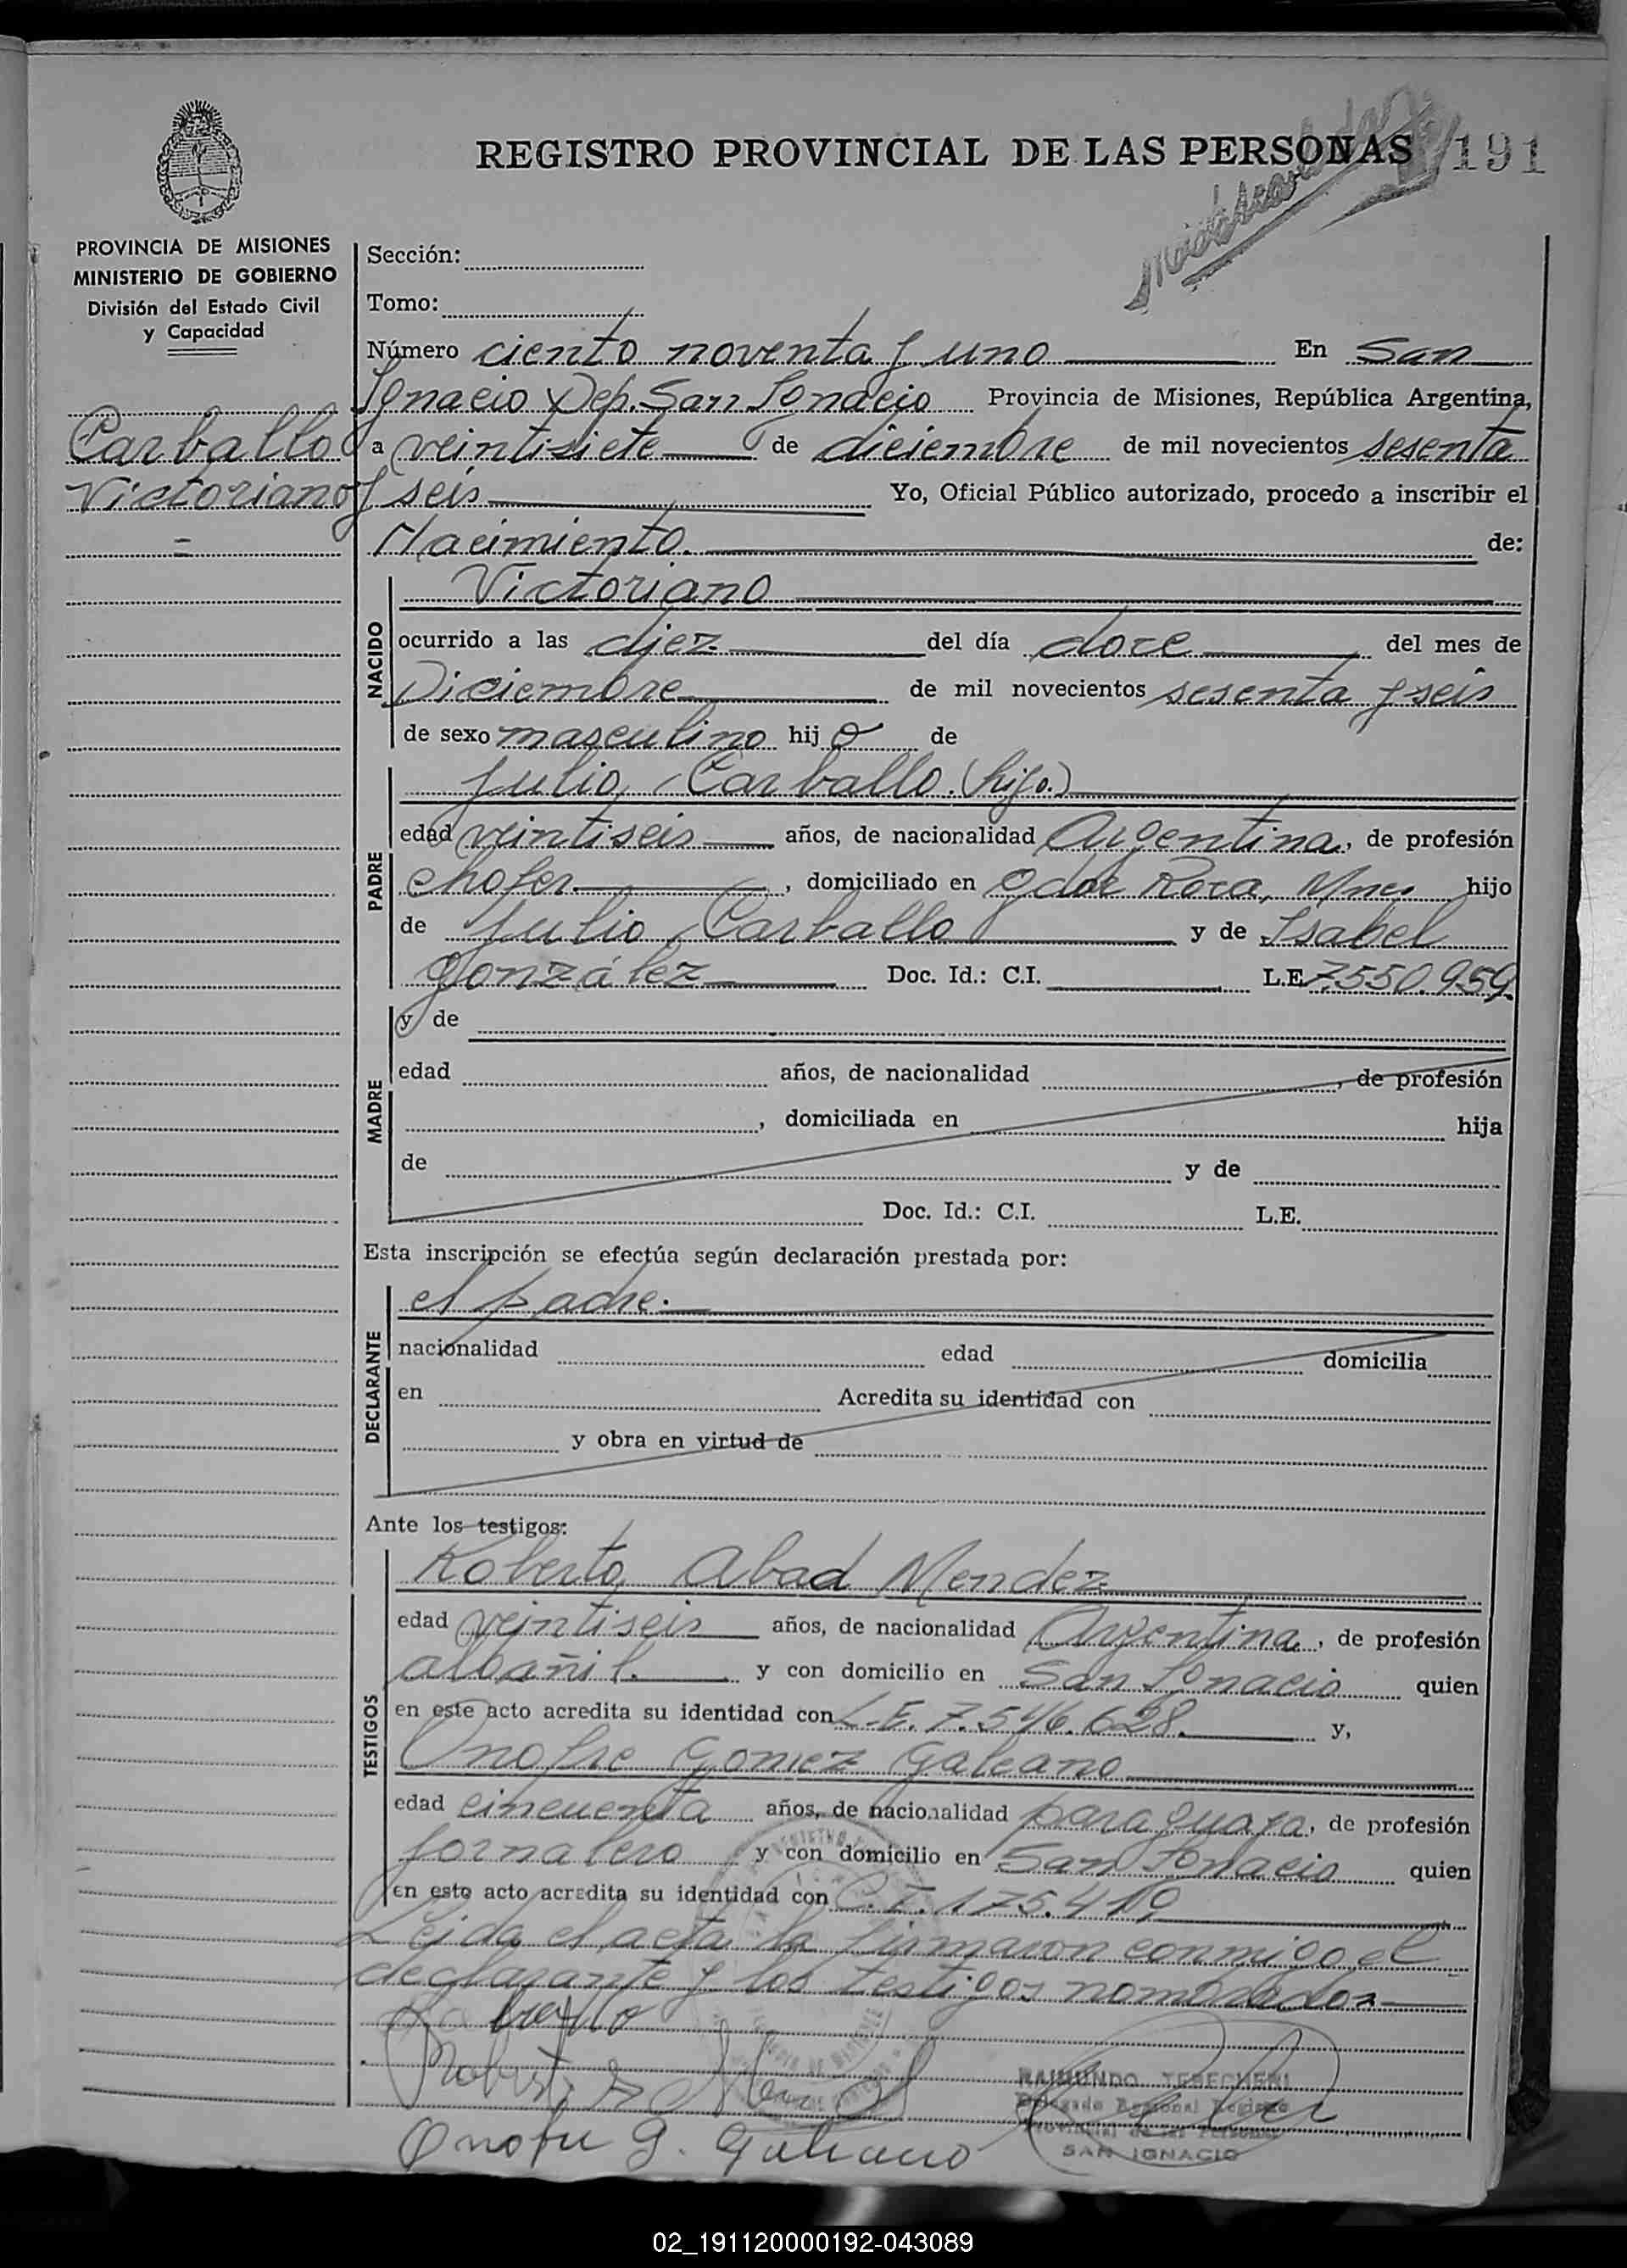 REGISTRO PROVINCIAL DE LAS PERSONAS 191
PROVINCIA DE MISIONES
MINISTERIO DE GOBIERNO
División del Estado Civil
y Capacidad
Carballo
Victoriano
=
Sección:
Tomo:
Número ciento noventa y uno En San
Ignacio Dep. San Ignacio Provincia de Misiones, República Argentina,
a veintisiete de diciembre de mil novecientos sesenta
y seis Yo, Oficial Público autorizado, procedo a inscribir el
Nacimiento. de:
NACIDO
Victoriano
ocurrido a las diez del día doce del mes de
Diciembre de mil novecientos sesenta y seis
de sexo masculino hijo de
PADRE
Julio Carballo (hijo.)
edad veintiseis años, de nacionalidad Argentina, de profesión
chofer. , domiciliado en Gdor Roca, Mnes hijo
de Julio Carballo y de Isabel
González Doc. Id.: C.I. L.E. 7.550.959.
MADRE
y de
edad años, de nacionalidad , de profesión
, domiciliada en hija
de y de
Doc. Id.: C.I. L.E.
Esta inscripción se efectúa según declaración prestada por:
DECLARANTE
el padre.
nacionalidad edad domicilia
en Acredita su identidad con
y obra en virtud de
Ante los testigos:
TESTIGOS
Roberto Abad Mendez
edad veintiseis años, de nacionalidad Argentina, de profesión
albañil. y con domicilio en San Ignacio quien
en este acto acredita su identidad con L.E. 7.546.628. y,
Onofre Gomez Galeano
edad cincuenta años, de nacionalidad paraguaya, de profesión
jornalero y con domicilio en San Ignacio quien
en este acto acredita su identidad con C.I. 175.419
Leida el acta la firmaron conmigo el
declarante y los testigos nombrados
Onofre G. Galeano
RAIMUNDO TEBECHERI
Delegado Regional Registro
Provincial de las Personas
SAN IGNACIO
02_191120000192-043089